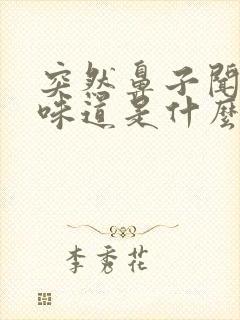 突然鼻子闻
味道是什么
李秀花